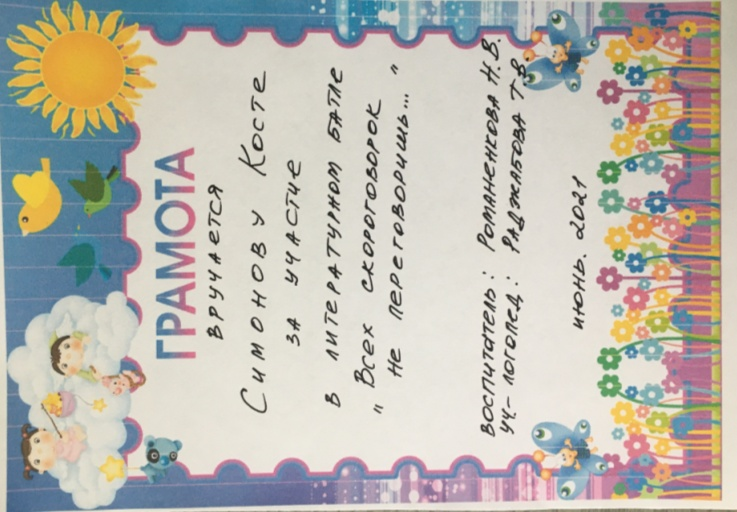 ГРАМОТА
ВРУЧАЕТСЯ
СИМОНОВУ КОСТЕ
ЗА УЧАСТИЕ
В ЛИТЕРАТУРНОМ БАТЛЕ
"ВСЕХ СКОРОГОВОРОК
НЕ ПЕРЕГОВОРИШЬ..."
ВОСПИТАТЕЛЬ: РОМАНЕНКОВА Н.В.
УЧ.-ЛОГОПЕД: РАДЖАБОВА Т.В.
ИЮНЬ. 2021